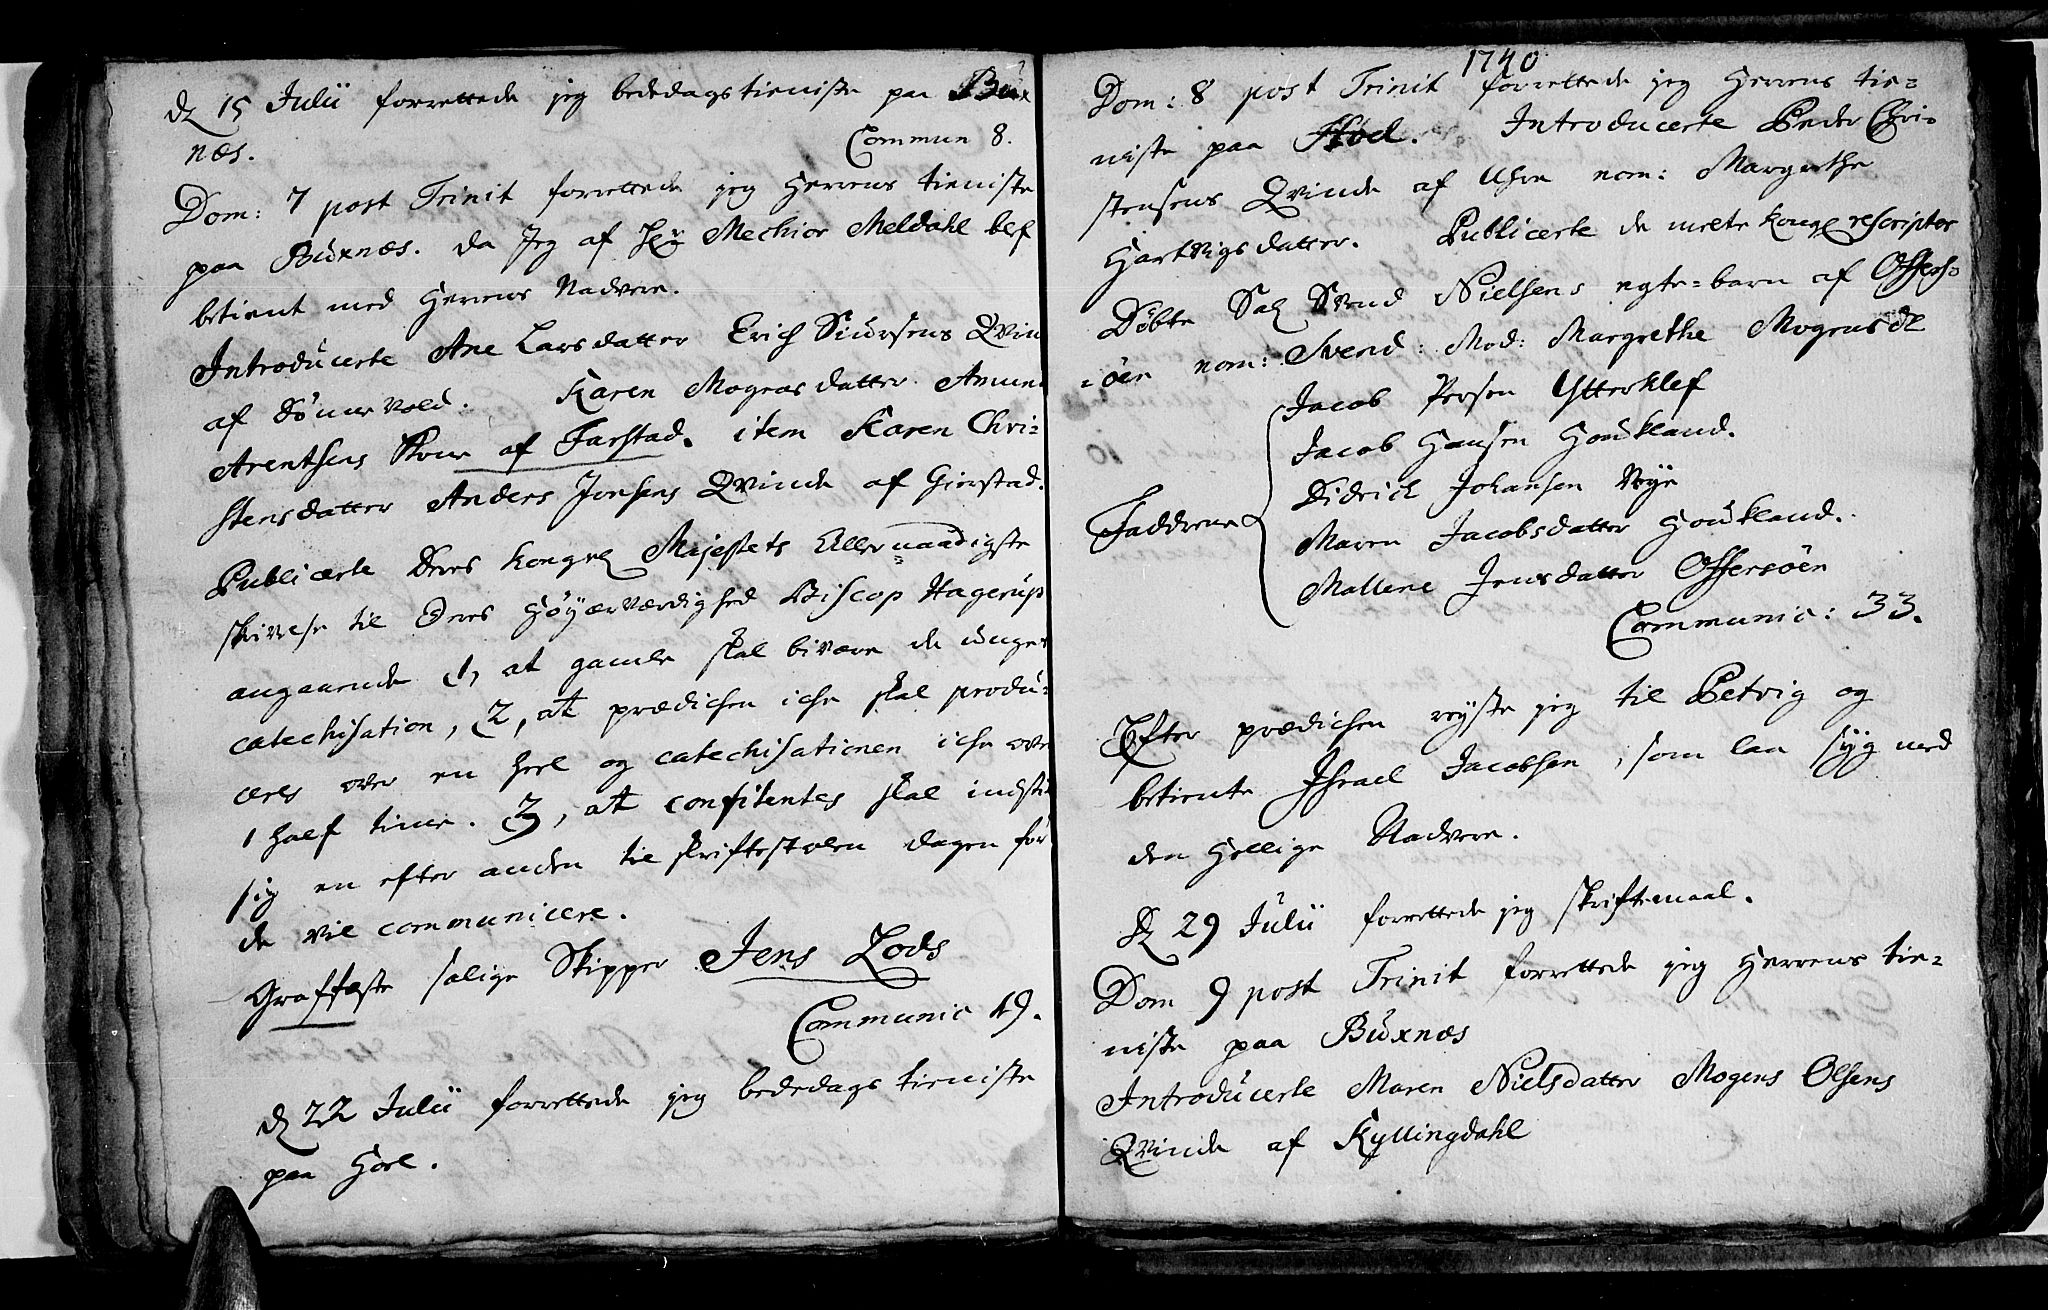 d 15 Julii forrettede jeg bededagstieniste paa Bux
næs. Commun 8.
Dom: 7 post Trinit forrettede jeg Herrens tieniste
paa Buxnæs. da Jeg af Hr Mechior Meldahl blef
betient med Herrens Nadvere.
Introducerte Ane Larsdatter Erich Siursens Qvin
af Sønervold. Karen Mogensdatter Amun
Arentsens Kone af Farstad. item Karen Chri-
stensdatter Anders Jonsens Qvinde af Gierstad.
Publicerte Deres Kongel Majestets Allernaadigste
skrivelse til Deres Høyærværdighed Biscop Hagerup
angaaende 1, at gamle skal bivære de unges
catechisation, 2, at prædichen iche skal produ-
ceres over en heel og catechisationen iche over
1 half time. 3, at confitentes skal indstil
sig en efter anden til skriftestolen dagen før
de vil communicere.
Graffæste salige Skipper Jens Lods
Communic 49.
d 22 Julii forrettede jeg bededags tieniste
paa Hoel.
1740
Dom: 8 post Trinit forrettede jeg Herrens tie-
niste paa Hoel. Introducerte Peder Chri-
stensens Qvinde af Uhre nom: Margrethe
Hartvigsdatter. Publicerte de melte kongl rescripter
Døbte Sal Svend Nielsens egte-barn af Offers-
-øen nom: Svend: Mod: Margrethe Mogensdr
Jacob Persen Ytterklef
Jacob Hansen Houkland.
Didrich Johansen Vøye
Faddrene
Maren Jacobsdatter Houkland.
Mallene Jensdatter Offersøen
Communic: 33.
Efter prædichen reyste jeg til Petvig og
betiente Jsrael Jacobsen, som laa syg med
den Hellige Nadvere.
D 29 Julii forrettede jeg skriftemaal.
Dom 9 post Trinit forrettede jeg Herrens tie-
niste paa Buxnæs
Introducerte Maren Nielsdatter Mogens Olsens
Qvinde af Kyllingdahl